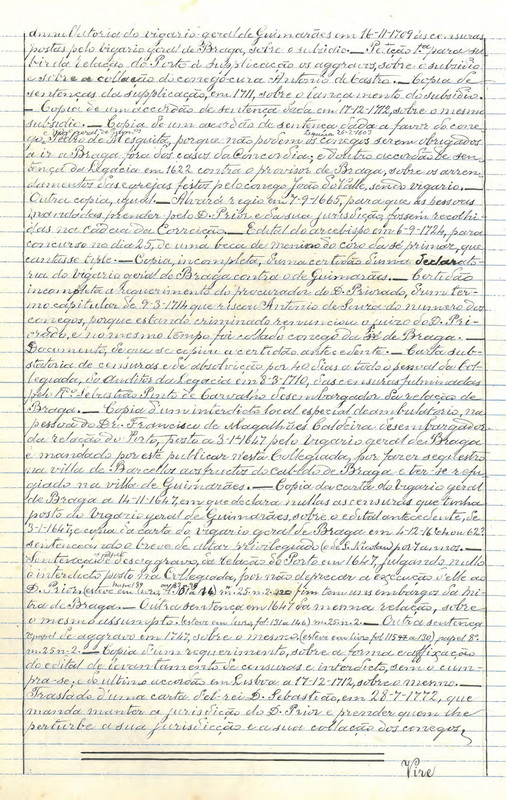 annullatoria do vigario geral de Guimarães em 16-11-1709 ás censuras
postas pelo vigario geral de Braga, sobre o subsidio. — Petição 1ª para su-
bir da relação do Porto á Supplicação os aggravos, sobre o subsidio
e sobre a collação do conego cura Antonio de Castro. — Copia de
sentenças da Supplicação, em 1711, sobre o lançamento do subsidio.
— Copia de um accordão de sentença dada em 17-12-1712, sobre o mesmo
subsidio. — Copia de um accordão de sentença dada a favor do cone-
go, Pedro de Mesquita, porque não podem os conegos ser em obrigados
a ir a Braga fóra dos casos da Concordia; e d'outro accordão de sen-
tença da Legacia em 1622 contra o provisor de Braga, sobre os arren-
damentos das egrejas feitos pelo conego João do Valle, sendo vigario.
Outra copia, igual. — Alvará regio em 7-9-1665, para que as pessoas
mandadas prender pelo D. Prior e da sua jurisdicção fossem recolhi-
das na cadeia da Correição. — Edital do arcebispo em 6-9-1724, para
concurso no dia 25, de uma beca de menino do côro da sé primaz, que
cantasse tiple. — Copia, incompleta, d'uma certidão d'uma declara-
toria do vigario geral de Braga contra o de Guimarães. — Certidão
incompleta a requerimento do procurador do D. Priorado, d'um ter-
mo capitular de 9-3-1714 que riscou Antonio de Souza do numero dos
conegos, porque estando criminado renunciou o juizo do D. Pri-
orado, e no mesmo tempo foi collado conego da Sé de Braga. —
Documento, de que se copiou a certidão antecedente. — Carta sub-
statoria de censuras e de absolvição por 40 dias a todo o pessoal da Col-
legiada, do Auditor da Legacia em 8-3-1710, das censuras fulminadas
pelo Rdº. Sebastião Pinto de Carvalho desembargador da relação de
Braga. — Copia d'um interdicto local especial deambulatorio, na
pessoa do Dr. Francisco de Magalhães Caldeira desembargador
da relação do Porto, posto a 3-1-1647 pelo Vigario geral de Braga
e mandado por este publicar nesta Collegiada, por fazer sequestro
na villa de Barcellos aos fructos do cabido de Braga e ter-se refu-
giado na villa de Guimarães. — Copia da carta do Vigario geral
de Braga a 14-11-1647, em que declara nullas as censuras que tinha
posto do Vigario geral de Guimarães, sobre o edital antecedente, de
3-1-1647, e copia da carta do vigario geral de Braga em 4-12-16
sentenciando o breve de altar privilegiado por 7 annos. —
Sentença de desaggravo, da relação do Porto em 1647, julgando nullo
o interdicto posto na Collegiada, por não deprecar a execução d'elle ao
D. Prior (esteve em livro fl. 131 a 146) m. 25 n. 2. no fim tem uns embargos da mi-
tra de Braga. — Outra sentença em 1647 da mesma relação, sobre
o mesmo assumpto. (esteve em livro, fol. 131 a 146) m. 25 n. 2. — Outra sentença
de aggravo em 1747, sobre o mesmo (esteve em livro fol. 115 a 130) papel 8º.
m. 25 n. 2. — Copia d'um requerimento, sobre a forma e affixação
do edital de levantamento de censuras e interdicto, sem o cum-
pra-se, e do ultimo accordão em Lisboa a 17-12-1712, sobre o mesmo. —
Traslado d'uma carta d'el-rei D. Sebastião, em 28-7-1772, que
manda manter a jurisdicção do D. Prior e prender quem lhe
perturbe a sua jurisdicção e a sua collação dos conegos,
Vire